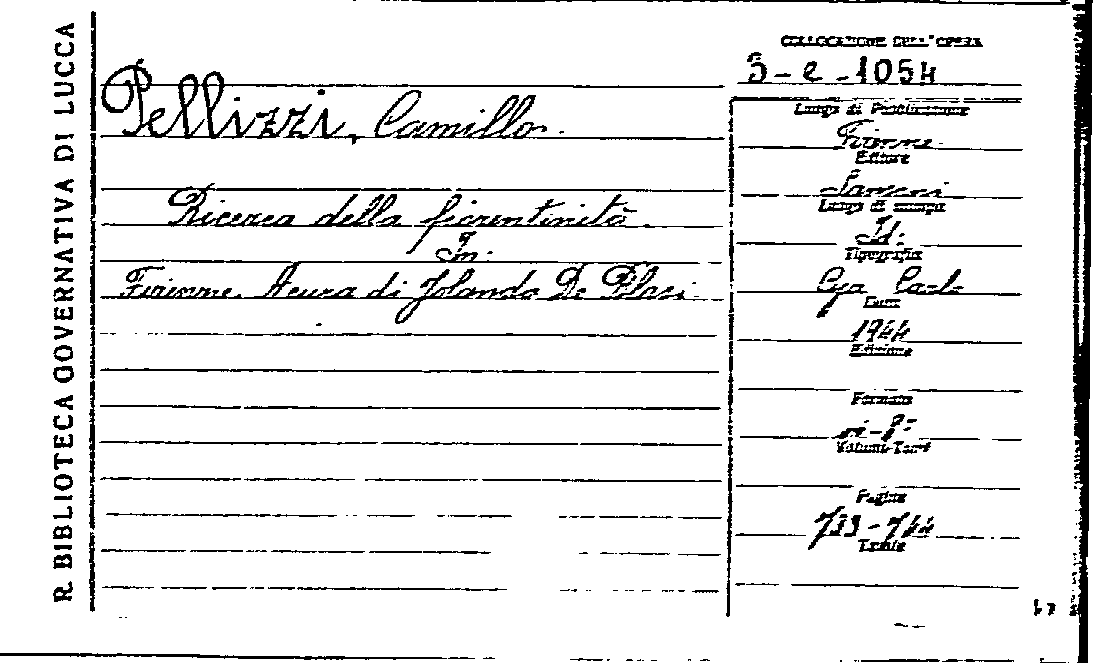 R. BIBLIOTECA GOVERNATIVA DI LUCCA
COLLOCAZIONE DELL'OPERA
3-e-1054
Pellizzi, Camillo.
Ricerca della fiorentinità.
In:
Firenze. A cura di Jolanda De Blasi.
Luogo di Pubblicazione
Firenze.
Editore
Sansoni
Luogo di stampa
Id.
Tipografia
Cya Carlo
Data
1944
Edizione
Formato
in-8°
Volumi-Tomi
Pagine
733-744
Tavole